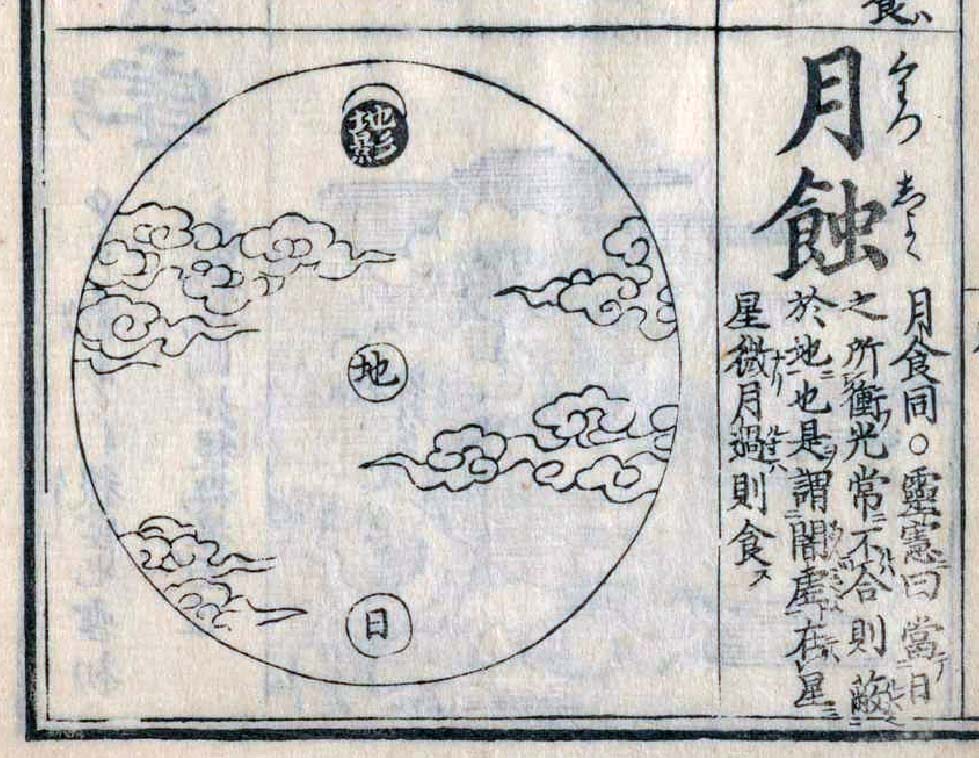 食
月蝕
月食同○靈憲曰當日
之所衝光常不合則蔽
於地也是謂闇虚在星
星微月過則食
地影
地
日